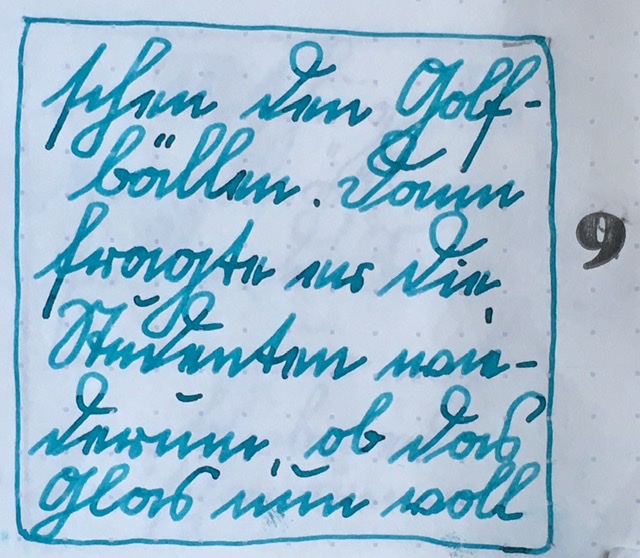 schen den Golf-
bällen. Dann
fragte er die
Studenten wie-
derum, ob das
Glas nun voll
9